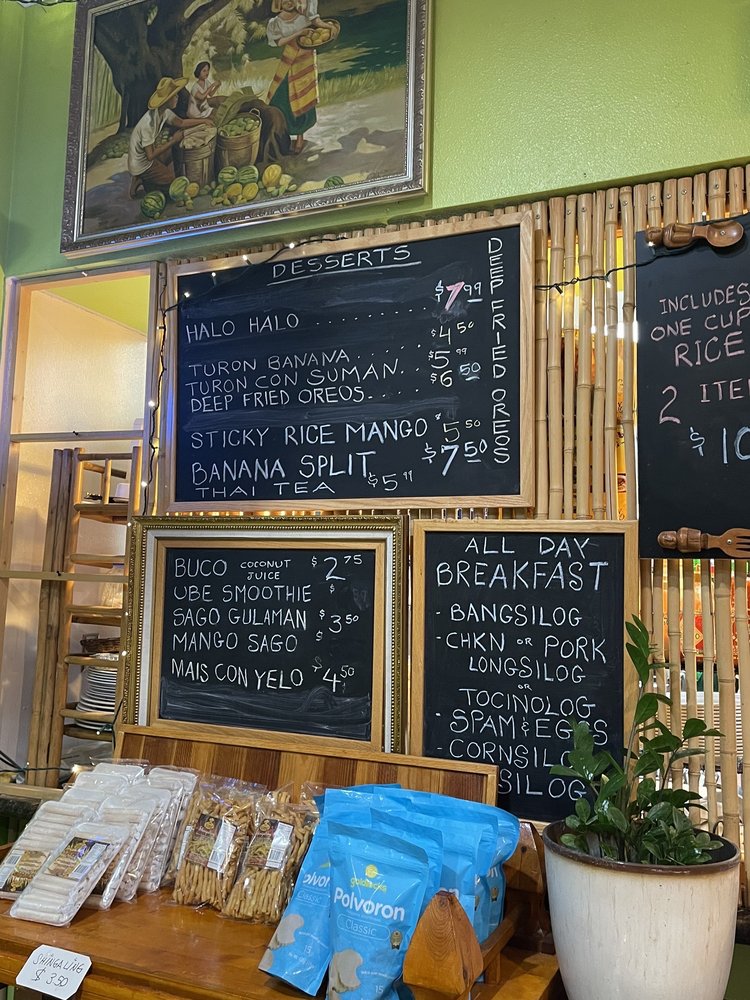 DESSERTS
HALO HALO . . . . . . . . . . . $7.99
TURON BANANA . . . . . . $4.50
TURON CON SUMAN . . $5.99
DEEP FRIED OREOS . . . . $6.50
STICKY RICE MANGO $5.50
BANANA SPLIT $7.50
THAI TEA $5.99
DEEP FRIED OREOS
INCLUDES
ONE CUP
RICE
2 ITE
$10
BUCO COCONUT JUICE $2.75
UBE SMOOTHIE $
SAGO GULAMAN $3.50
MANGO SAGO $
MAIS CON YELO $4.50
ALL DAY
BREAKFAST
- BANGSILOG
- CHKN OR PORK
LONGSILOG
OR
TOCINOLOG
- SPAM & EGGS
- CORNSILO
SILOG
goldilocks
Polvoron
Classic
15
SHINGALING
$3.50